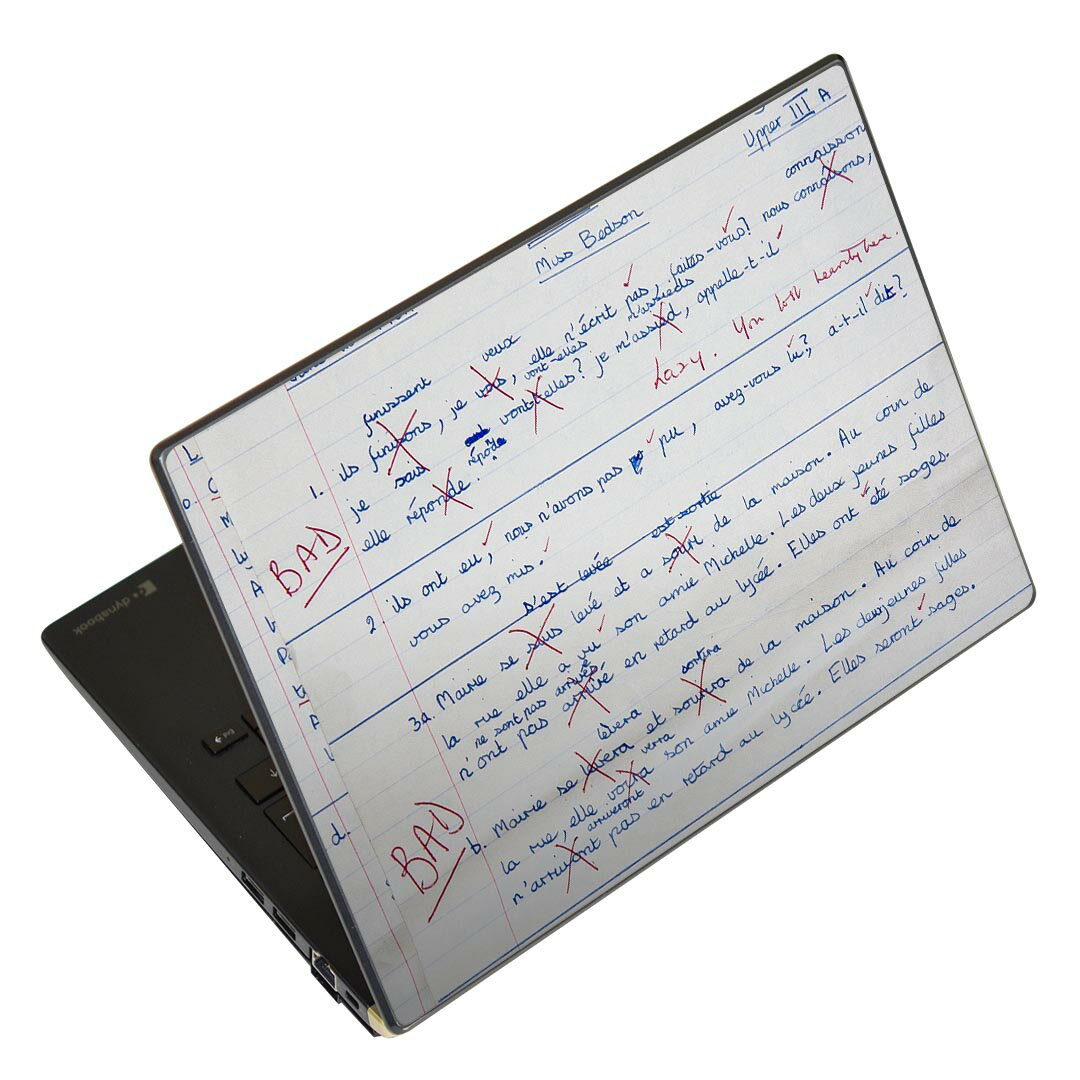 Upper III A
Miss Bedson
connaisson
finissent veux m'assieds
1. ils finissons, je vois, elle n'écrit pas, faites-vous? nous connaisons,
vont-elles
je sais vont-elles? je m'assied, appelle-t-il
réponde
elle réponde. Lazy. You lost heavily here.
BAD
2. ils ont eu, nous n'avons pas pu, avez-vous lu? a-t-il dit?
vous avez mis.
s'est levée est sortie
3a. Mairie se sous levé et a sorti de la maison. Au coin de
la rue elle a vu son amie Michelle. Les deux jeunes filles
ne sont pas arrivées
n'ont pas arrivé en retard au lycée. Elles ont été sages.
lèvera sortira
b. Mairie se levera et sourira de la maison. Au coin de
verra
la rue, elle voira son amie Michelle. Les deux jeunes filles
arriveront
n'arriveront pas en retard au lycée. Elles seront sages.
BAD
d.
dynabook